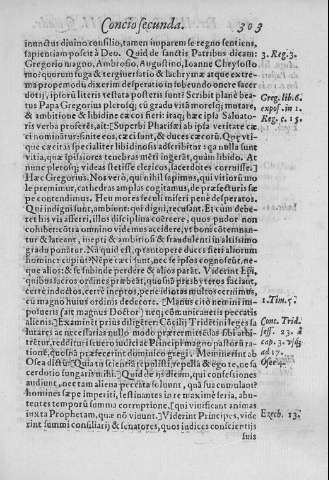 Concio secunda. 303
iunctus diuino consilio, tamen imparem se regno sentiens,
sapientiam poscit à Deo. Quid de sanctis Patribus dicam:
Gregorio magno, Ambrosio, Augustino, Ioanne Chrysosto
mo: quorum fuga & tergiuersatio & lachrymæ atque extre
ma propemodum desperatio in subeundo onere sacer
dotij, ipsorũ literis testata posteris sunt? Scribit planè bea-
tus Papa Gregorius plerosq; sũ gradu vitã moresq; motare,
& ambitione & libidine cæcos fieri: itaq; hæc ipsa Saluato-
ris verba profert, ait: Superbi Pharisæi ab ipsa veritate cæ
ci nominãtur: sinite eos, cæci sunt, & duces cæcorũ. Que vti-
que cæcitas specialiter superbis cõgruebat: quia nulla sunt
vitia, quæ ipsissimos tenebras mẽti ingerãt, quàm libido. At
nunc plerosq; videas festisse clericos, sacerdotes
Hæc Gregorius. Nos verò, qui nihil sapimus, qui vitiorũ mo
le premimur, cathedras amplos cogitamus, de præfecturis sæ
pe contendimus. Heu mores seculi nostri penè desperatos.
Qui indigni sunt, ambiunt: qui digni, recusant. Et cùm de-
bet his vis afferri, illos disciplina coërcere, quos pudor non
cohibet: cõtra omnino videmus accidere, vt boni cõtemnan-
tur & lateant, inepti & ambitiosi & fraudulenti in altissimo
gradu ponãtur. Nã quid est, q tantopere duces fieri aliorum
homines cupiũt? Nẽpe cæci sunt, nec se ipsos cognoscũt, ne-
que alios: & se subinde perdere & alios parãt. Viderint Epi,
quibus sacros ordines præbeant, quos nũ presbyteros faciant,
certè indoctos, certè ineptos, penè idiotas multos cernimus,
cũ magno huius ordinis dedecore. Manus citò nemini im-
posueris (ait magnus Doctor) neq; cõmunicaueris peccatis
alienis. Examinẽt prius diligẽter. Cõcilij Tridẽtini leges sa
lutares ac necessarias nullo modo prætermittẽdos sibi arbi-
trẽtur, reddituri seuero iudici ac Principi magno pastorũ ra-
tionẽ, quos nã præfecerint dominico gregi. Meminerint ab
Osea dictũ: Quia tu sciẽtiã repulisti, repellã & ego te, ne sa-
cerdotio fungaris mihi. Quid ij dicam, qui confessiones
audiunt, nec tam aliena peccata soluunt, quã sua cumulant?
homines sæpe imperiti, festinantes in re maximè seria, abu-
tentes temporũ summa corruptione, qui viuificant animas
iuxta Prophetam, quæ nõ viuunt. Viderint Principes, vide
rint summi consiliarij & senatores, quos indices conscientijs
suis
3. Reg. 3.
Greg. lib. 6.
expos. in 1.
Reg. c. 15.
1. Tim. 5.
Conc. Trid.
sess. 23. à
cap. 3. vsq;
ad 17.
Oseæ 4.
Ezech. 13.